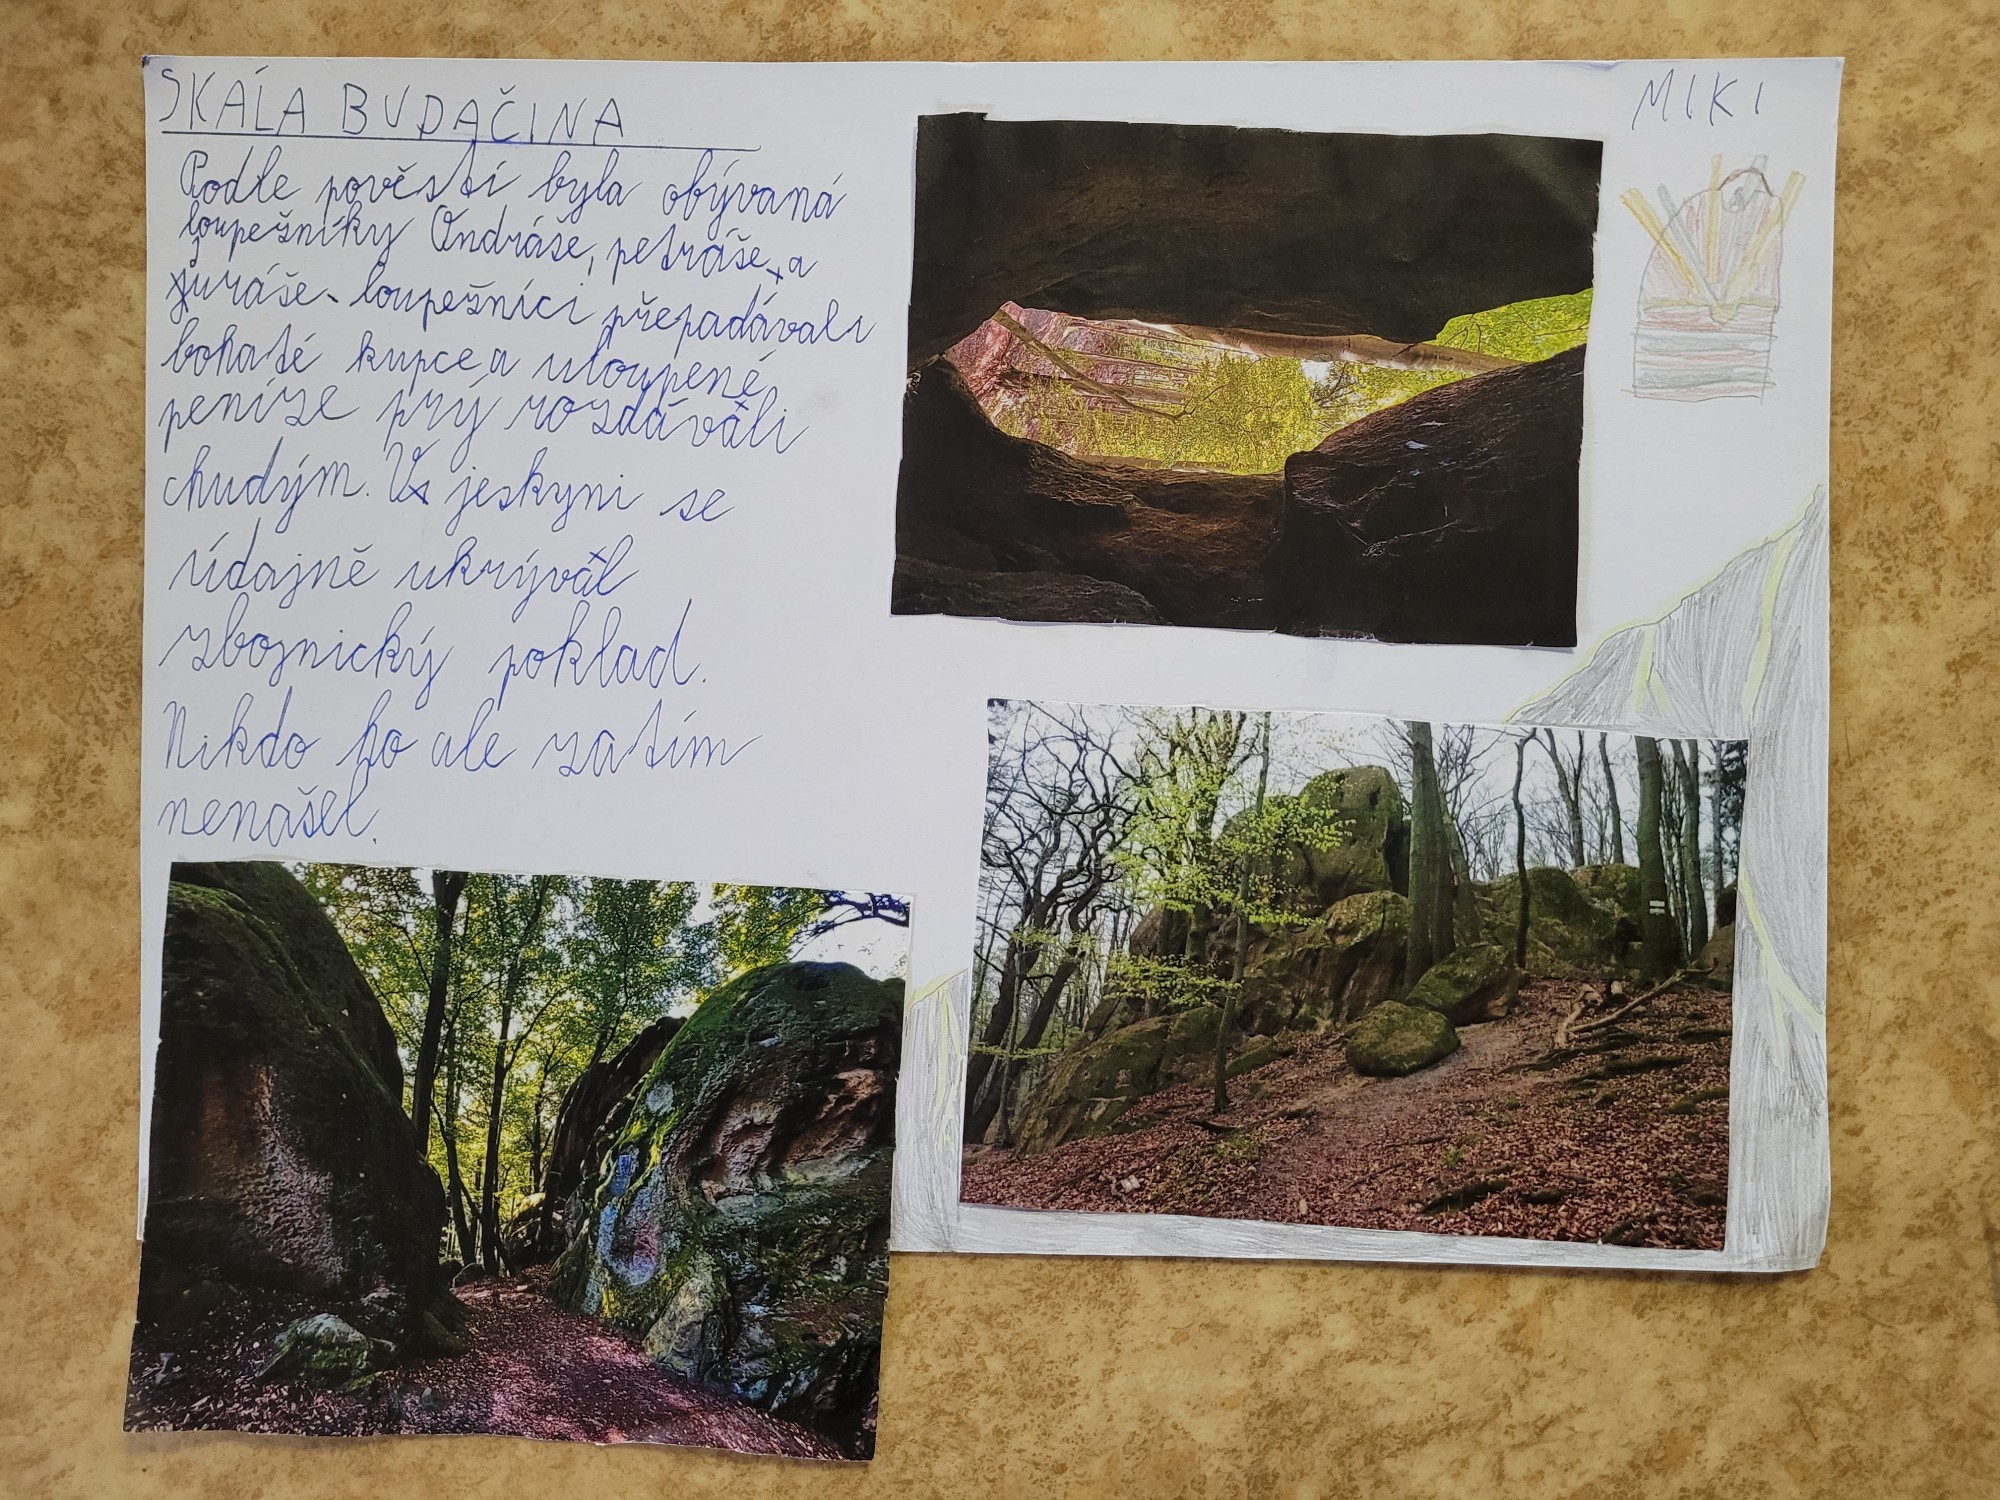 SKÁLA BUDAČINA
MIKI
Podle pověstí byla obývaná
loupežníky Ondráše, petráše a
juráše. loupežníci přepadávali
bohaté kupce a uloupené
peníze prý rozdávali
chudým. V jeskyni se
údajně ukrýval
zbojnický poklad.
Nikdo ho ale zatím
nenašel.